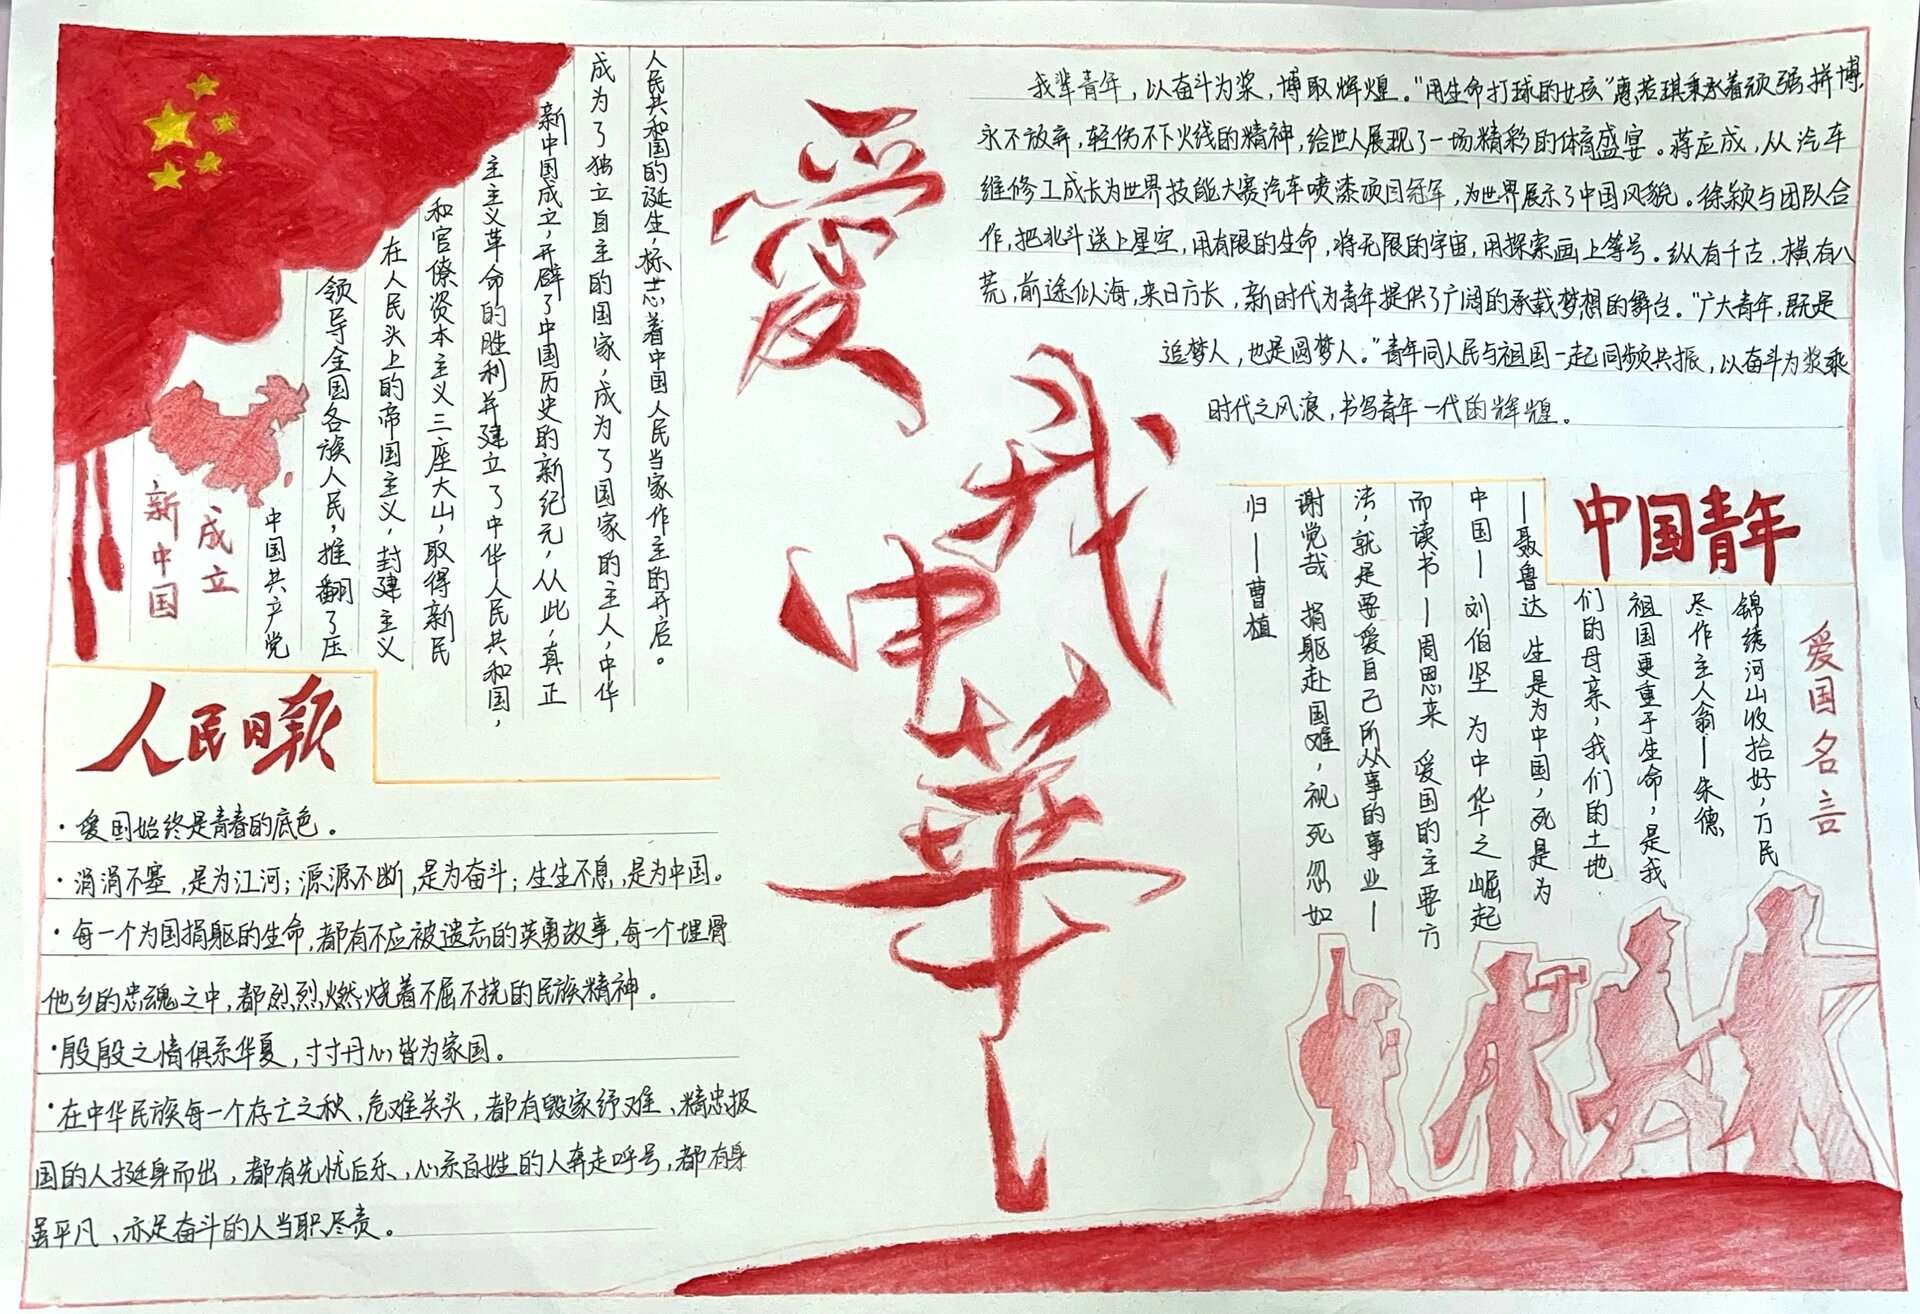 新中国
成立
中国共产党
领导全国各族人民，推翻了压
在人民头上的帝国主义，封建主义
和官僚资本主义三座大山，取得新民
主主义革命的胜利并建立了中华人民共和国，
新中国成立，开辟了中国历史的新纪元，从此，真正
成为了独立自主的国家，成为了国家的主人，中华
人民共和国的诞生，标志着中国人民当家作主的开启。
人民日报
·爱国始终是青春的底色。
·涓涓不塞，是为江河；源源不断，是为奋斗；生生不息，是为中国。
·每一个为国捐躯的生命，都有不应被遗忘的英勇故事，每一个埋骨
他乡的忠魂之中，都烈烈燃烧着不屈不挠的民族精神。
·殷殷之情俱系华夏，寸寸丹心皆为家国。
·在中华民族每一个存亡之秋、危难关头，都有毁家纾难、精忠报
国的人挺身而出，都有先忧后乐、心系百姓的人奔走呼号，都有身
虽平凡、亦足奋斗的人当职尽责。
愛我中華
我辈青年，以奋斗为桨，博取辉煌。“用生命打球的女孩”惠若琪秉承着顽强拼博，
永不放弃，轻伤不下火线的精神，给世人展现了一场精彩的体育盛宴。蒋应成，从汽车
维修工成长为世界技能大赛汽车喷漆项目冠军，为世界展示了中国风貌。徐颖与团队合
作，把北斗送上星空，用有限的生命，将无限的宇宙，用探索画上等号。纵有千古，横有八
荒，前途似海，来日方长，新时代为青年提供了广阔的承载梦想的舞台。“广大青年，既是
追梦人，也是圆梦人。”青年同人民与祖国一起同频共振，以奋斗为桨乘
时代之风浪，书写青年一代的辉煌。
中国青年
爱国名言
锦绣河山收拾好，万民
尽作主人翁—朱德
祖国更重于生命，是我
们的母亲，我们的土地
—聂鲁达 生是为中国，死是为
中国—刘伯坚 为中华之崛起
而读书—周恩来 爱国的主要方
法，就是要爱自己所从事的事业—
谢党哉 捐躯赴国难，视死忽如
归—曹植